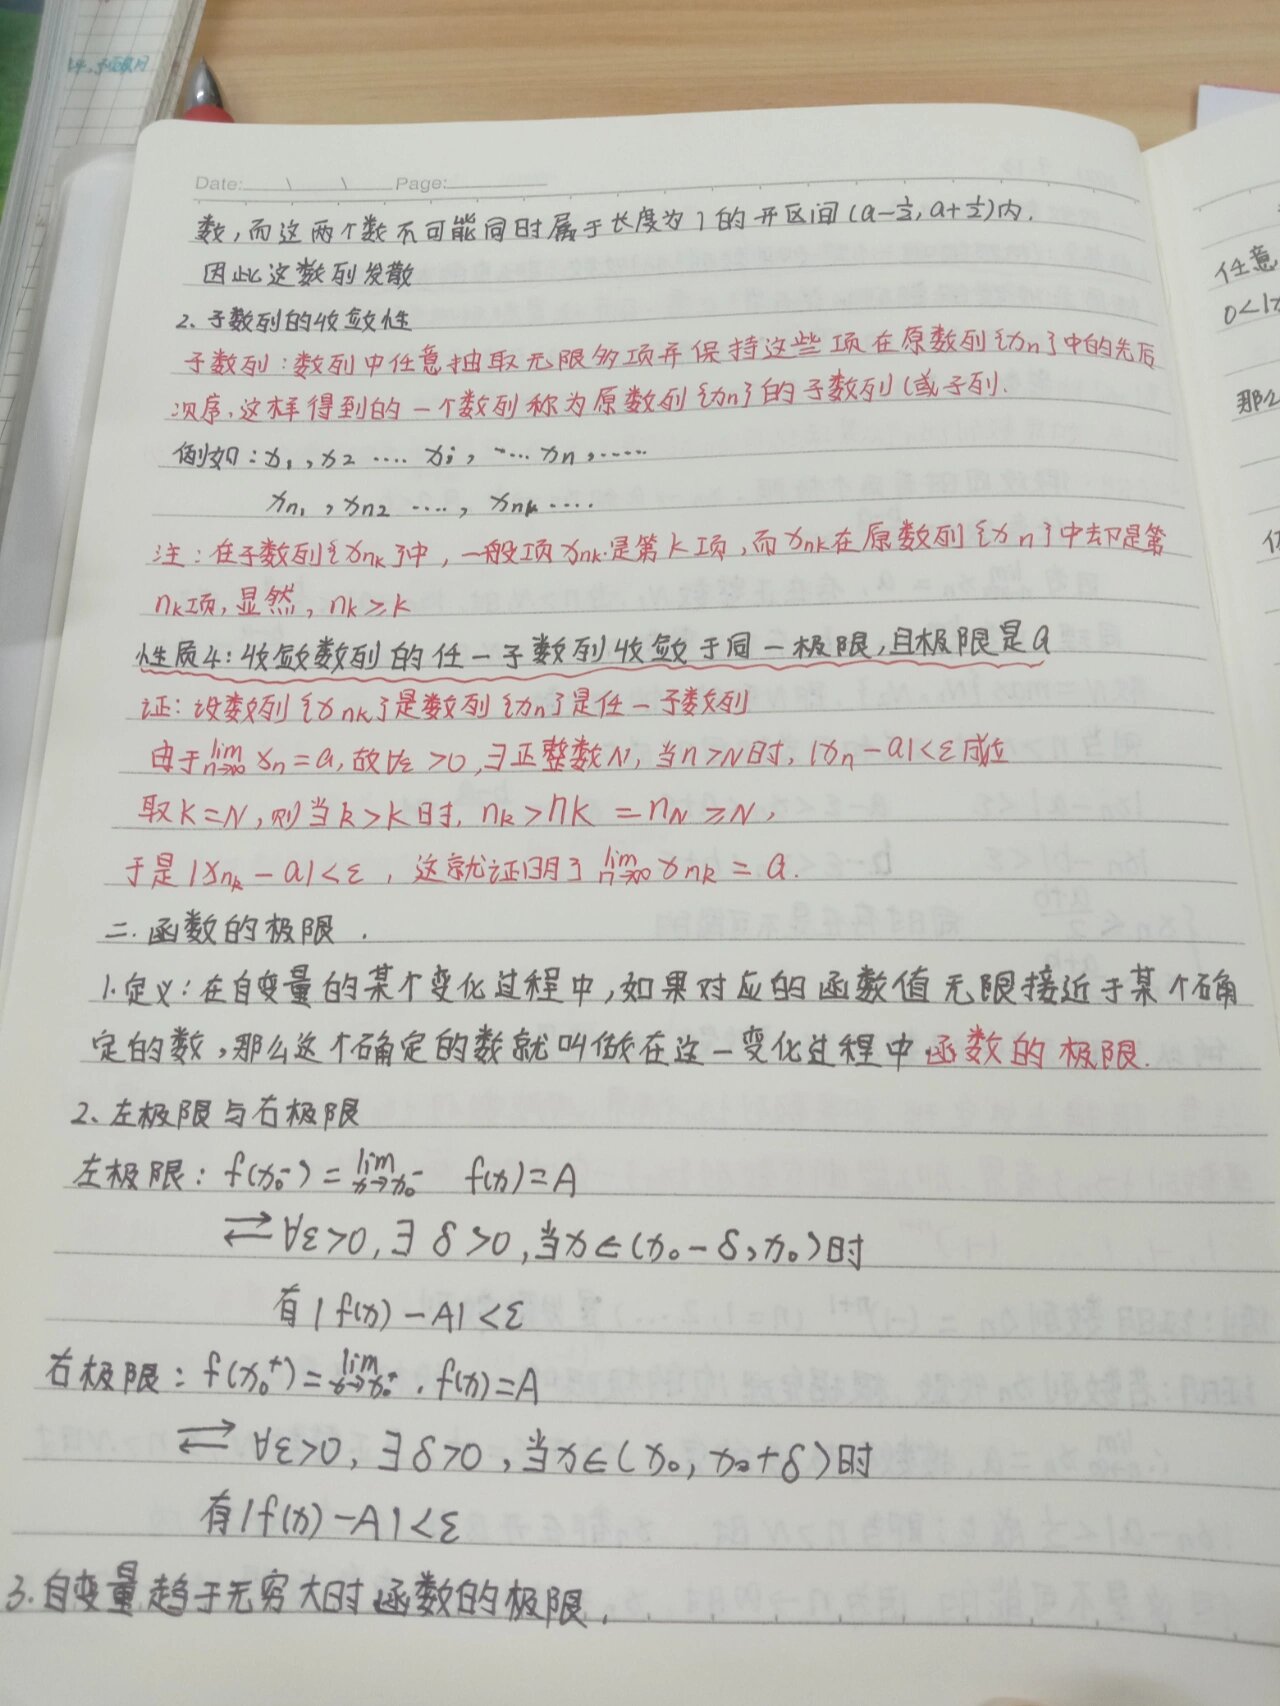 Date: \ \ Page:
数,而这两个数不可能同时属于长度为1的开区间(a-½,a+½)内.
因此这数列发散
2、子数列的收敛性
子数列:数列中任意抽取无限多项并保持这些项在原数列{xn}中的先后
次序,这样得到的一个数列称为原数列{xn}的子数列(或子列.
例如:x₁,x₂ …. xᵢ, …. xn,……
xn₁,xn₂ ….,xnₖ….
注:在子数列{xnₖ}中,一般项xnₖ是第k项,而xnₖ在原数列{xn}中却是第
nₖ项,显然,nₖ≥k
性质4:收敛数列的任一子数列收敛于同一极限,且极限是a
证:设数列{xnₖ}是数列{xn}是任一子数列
由于lim n→∞ xn=a,故∀ε>0,∃正整数N,当n>N时,|xn-a|<ε成立
取K=N,则当k>K时,nₖ>nK=nN≥N,
于是|xnₖ-a|<ε,这就证明了lim n→∞ xnₖ=a.
二.函数的极限.
1.定义:在自变量的某个变化过程中,如果对应的函数值无限接近于某个确
定的数,那么这个确定的数就叫做在这一变化过程中函数的极限.
2、左极限与右极限
左极限:f(x₀⁻)=lim x→x₀⁻ f(x)=A
⇄∀ε>0,∃δ>0,当x∈(x₀-δ,x₀)时
有|f(x)-A|<ε
右极限:f(x₀⁺)=lim x→x₀⁺.f(x)=A
⇄∀ε>0,∃δ>0,当x∈(x₀,x₀+δ)时
有|f(x)-A|<ε
3.自变量趋于无穷大时函数的极限.
任意
0<|x
那么